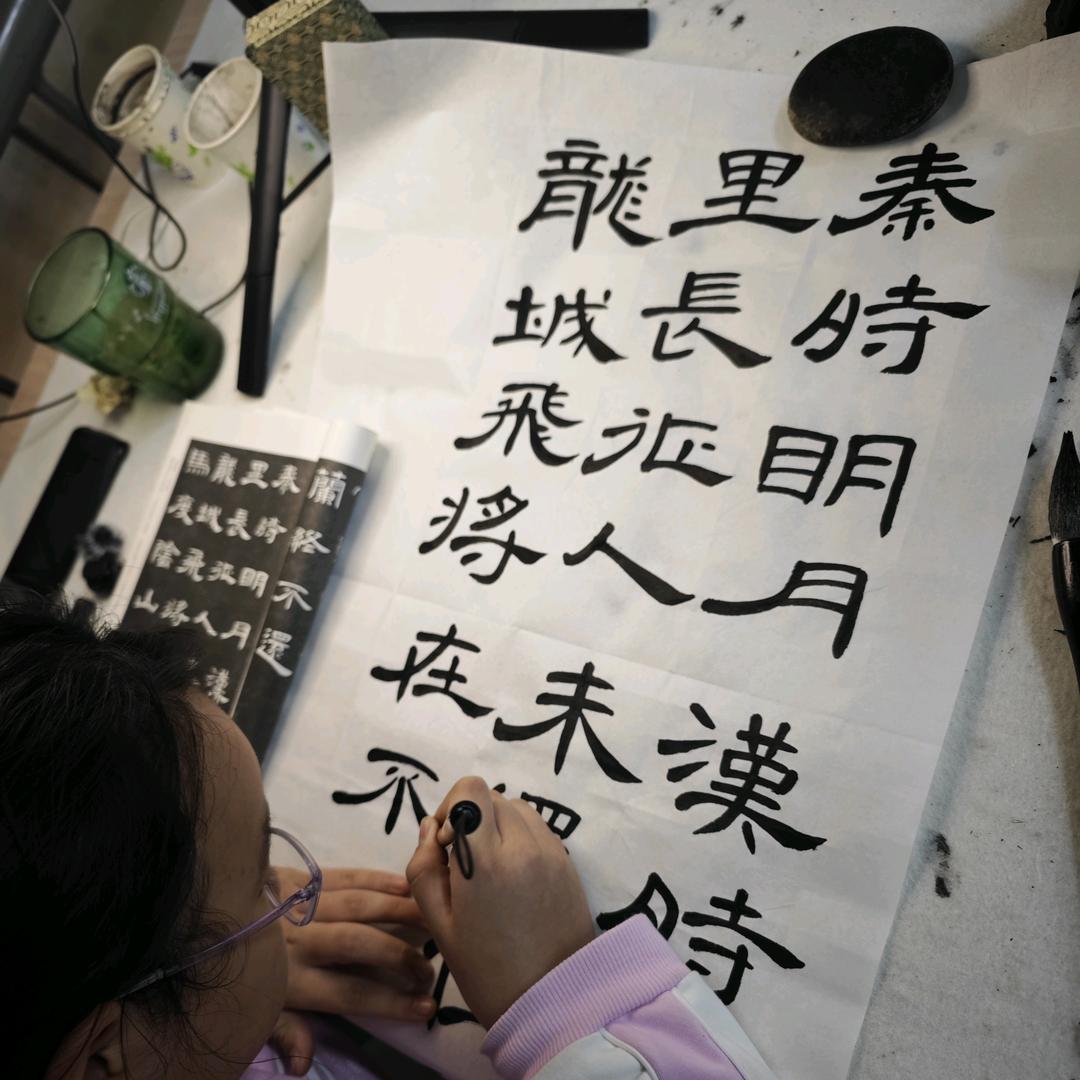 秦時明月漢時
里長征人未
龍城飛將在不
蘭終不還
秦時明月漢
里長征人
龍城飛將
馬度陰山